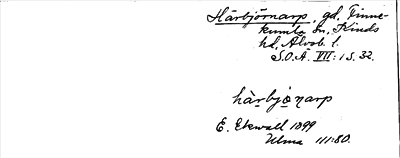 Härbjörnarp, gd, Finne-
kumla sn, Kinds
hd, Älvsb. l.
S.O.Ä. VII: 1 S. 32.
härbjonarp
E. Ekwall 1899
Ulma 111:80.